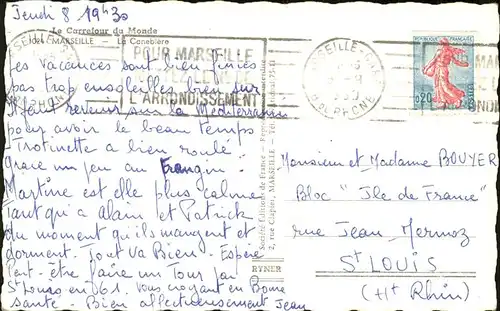 Jeudi 8 19h30
Le Carrefour du Monde
MARSEILLE - La Canebière
POUR MARSEILLE
L'ARRONDISSEMENT
Les vacances sont bien finies
pas trop ensoleillées bien sur
Il faut revenir sur la Méditerranée
pour avoir le beau temps
Trotinette a bien roulé
grace un peu au frangin!
Martine est elle plus calme
Tant qu'a Alain et Patrick
du moment qu'ils mangent et
dorment. Tout va Bien - Espère
Peut-être faire un Tour par
St Louis en 61. Vous croyant en Bonne
santé - Bien affectueusement Jean
Société Editions de France
2, rue Clapier, MARSEILLE
RYNER
MARSEILLE
B. DU RHONE
REPUBLIQUE FRANÇAISE
0,20
POSTES
Monsieur et Madame BOUYER
Bloc "Ile de France"
rue Jean Mermoz
St LOUIS
(Ht Rhin)